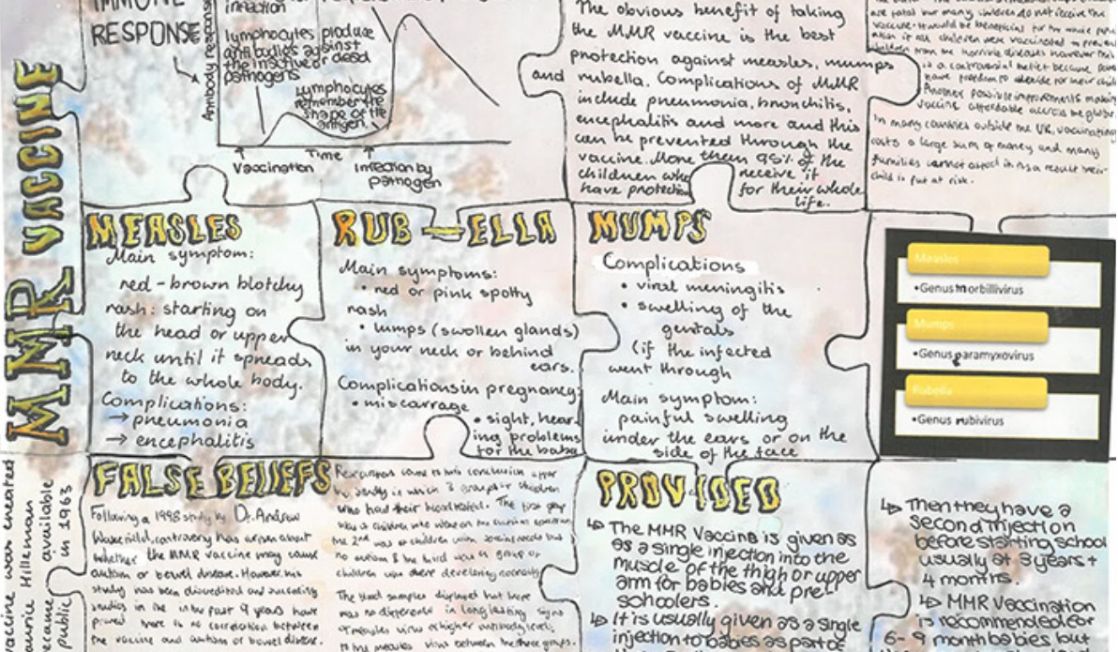 IMMUNE
RESPONSE
Antibody response
infection
lymphocytes produce
antibodies against
the inactive or dead
pathogens
lymphocytes
remember the
shape of the
antigen.
Vaccination
Time
Infection by
pathogen
The obvious benefit of taking
the MMR vaccine is the best
protection against measles, mumps
and rubella. Complications of MMR
include pneumonia, bronchitis,
encephalitis and more and this
can be prevented through the
vaccine. More them 95% of the
children who receive it
have protection for their whole
life.
are fatal but many children do not receive the
vaccine. It would be beneficial for the whole
if all children were vaccinated to
children from the horrible diseases However this
is a controversial belief because
have freedom to decide for their
Another possible improvements
vaccine affordable across the
In many countries outside the UK, vaccination
costs a large sum of money and many
families cannot afford it as a result their
child is put at risk.
MMR VACCINE
MEASLES
Main symptom:
red - brown blotchy
rash: starting on
the head or upper
neck until it spreads
to the whole body.
Complications:
→ pneumonia
→ encephalitis
RUB — ELLA
Main symptoms:
• red or pink spotty
rash
• lumps (swollen glands)
in your neck or behind
ears.
Complications in pregnancy:
• miscarrage
• sight, hear-
ing problems
for the baby
MUMPS
Complications
• viral meningitis
• swelling of the
genitals
(if the infected
went through
Main symptom:
painful swelling
under the ears or on the
side of the face
Measles
•Genus morbillivirus
Mumps
•Genus paramyxovirus
Rubella
•Genus rubivirus
vaccine was created
Maurice Hilleman
became available
public in 1963
FALSE BELIEFS
Following a 1998 study by Dr. Andrew
Wakefield, controversy has arisen about
whether the MMR vaccine may cause
autism or bowel disease. However, his
study has been discredited and
studies in the past 9 years have
proved there is no correlation between
the vaccine and autism or bowel disease.
Researchers came to this conclusion
study in which 3 groups of children
who had their blood tested. The first
children who were on the autism spectrum
the 2nd was of children with special needs but
no autism & the third was a group of
children who were developing normally
The blood samples displayed that there
was no difference in long lasting signs
of measles virus or higher antibody levels
to the measles virus between the three groups.
PROVIDED
↳ The MMR Vaccine is given as
as a single injection into the
muscle of the thigh or upper
arm for babies and pre-
schoolers.
↳ It is usually given as a single
injection to babies as part of
↳ Then they have a
second injection
before starting school
usually at 3 years +
4 months.
↳ MMR Vaccination
is recommended for
6- 9 month babies but